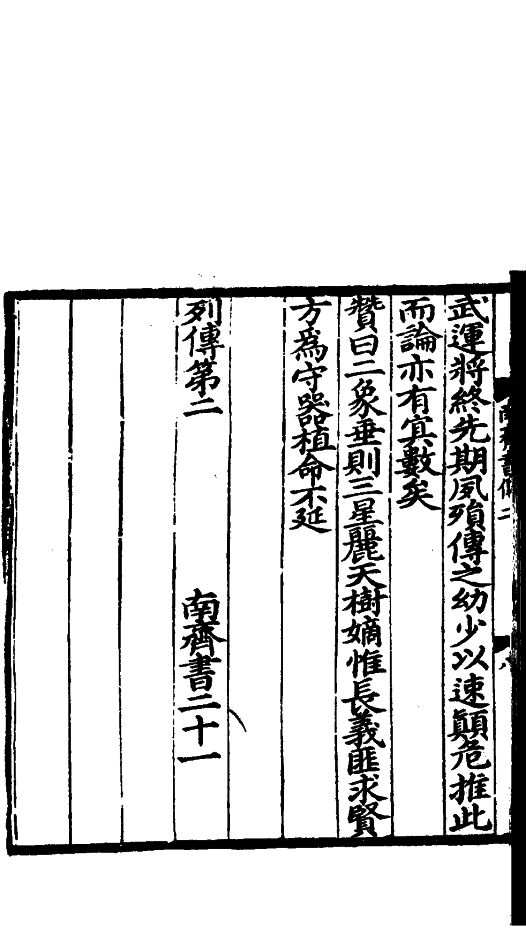 武運將終先期夙殞傳之幼少以速顚危推此
而論亦有㝠數矣
贊曰二象垂則三星麗天樹嫡惟長義匪求賢
方爲守器植命不延
列傳第二　南齊書二十一
南齊書傳二
八